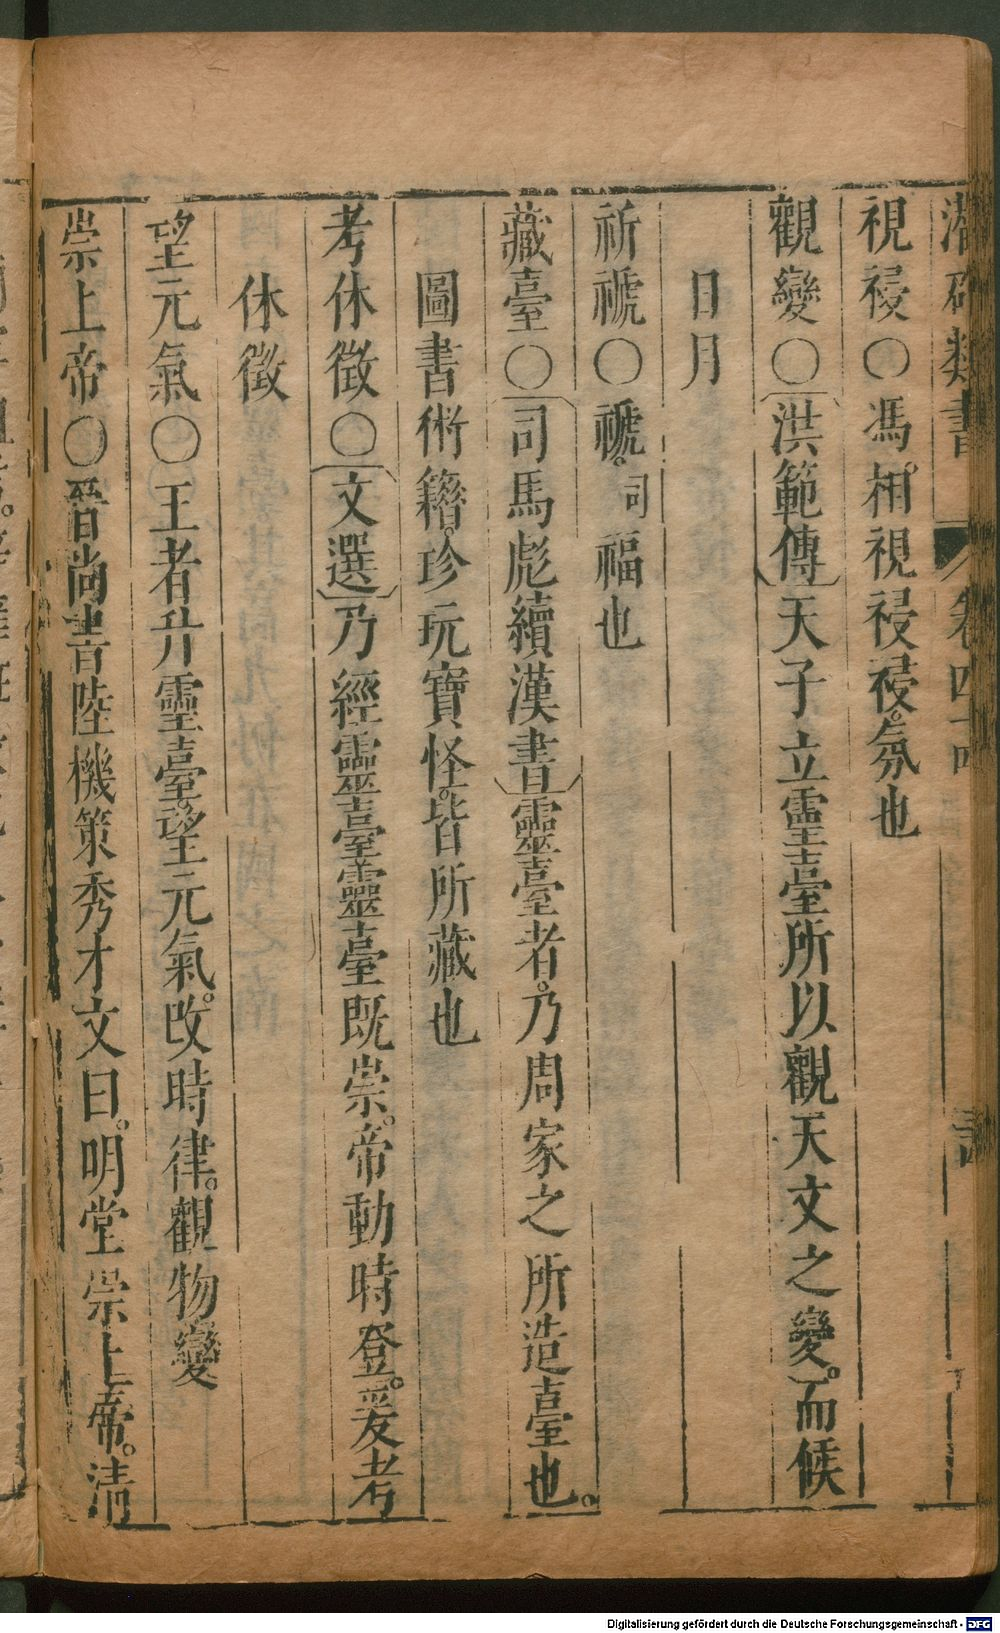 潛確類書
卷四十
視祲〇馮相視祲祲氛也
觀變〇洪範傳天子立靈臺所以觀天文之變而候
日月
祈禠〇禠司福也
藏臺〇司馬彪續漢書靈臺者乃周家之所造臺也
圖書術籍珍玩寶怪皆所藏也
考休徵〇文選乃經靈臺靈臺既崇帝勤時登爰考
休徵
望元氣〇王者升靈臺望元氣改時律觀物變
崇上帝〇晉尚書陸機策秀才文曰明堂崇上帝清
Digitalisierung gefördert durch die Deutsche Forschungsgemeinschaft - DFG